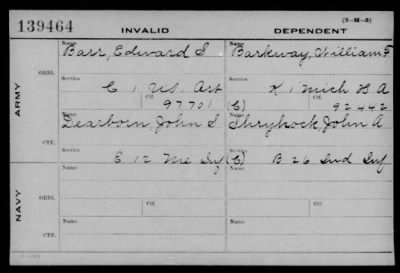 139464 INVALID DEPENDENT (3-H-3)
ARMY
NAVY
ORIG.
Name Barr, Edward S Name Barkway, William F
Service Service
C 1 US. Art K 1 Mich H A
Ctf. 97701 (C) Ctf. 92442
CTF.
Name Dearborn, John S Name Shryhock, John A
Service Service
E 12 Me Inf (C) B 26 Ind Inf
ORIG.
Name Name
Ctf. Ctf.
CTF.
Name Name